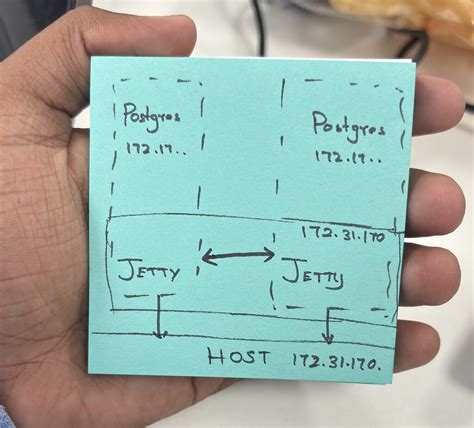 Postgres
172.17..
Postgres
172.17..
172.31.170
JETTY
JETTY
HOST 172.31.170.